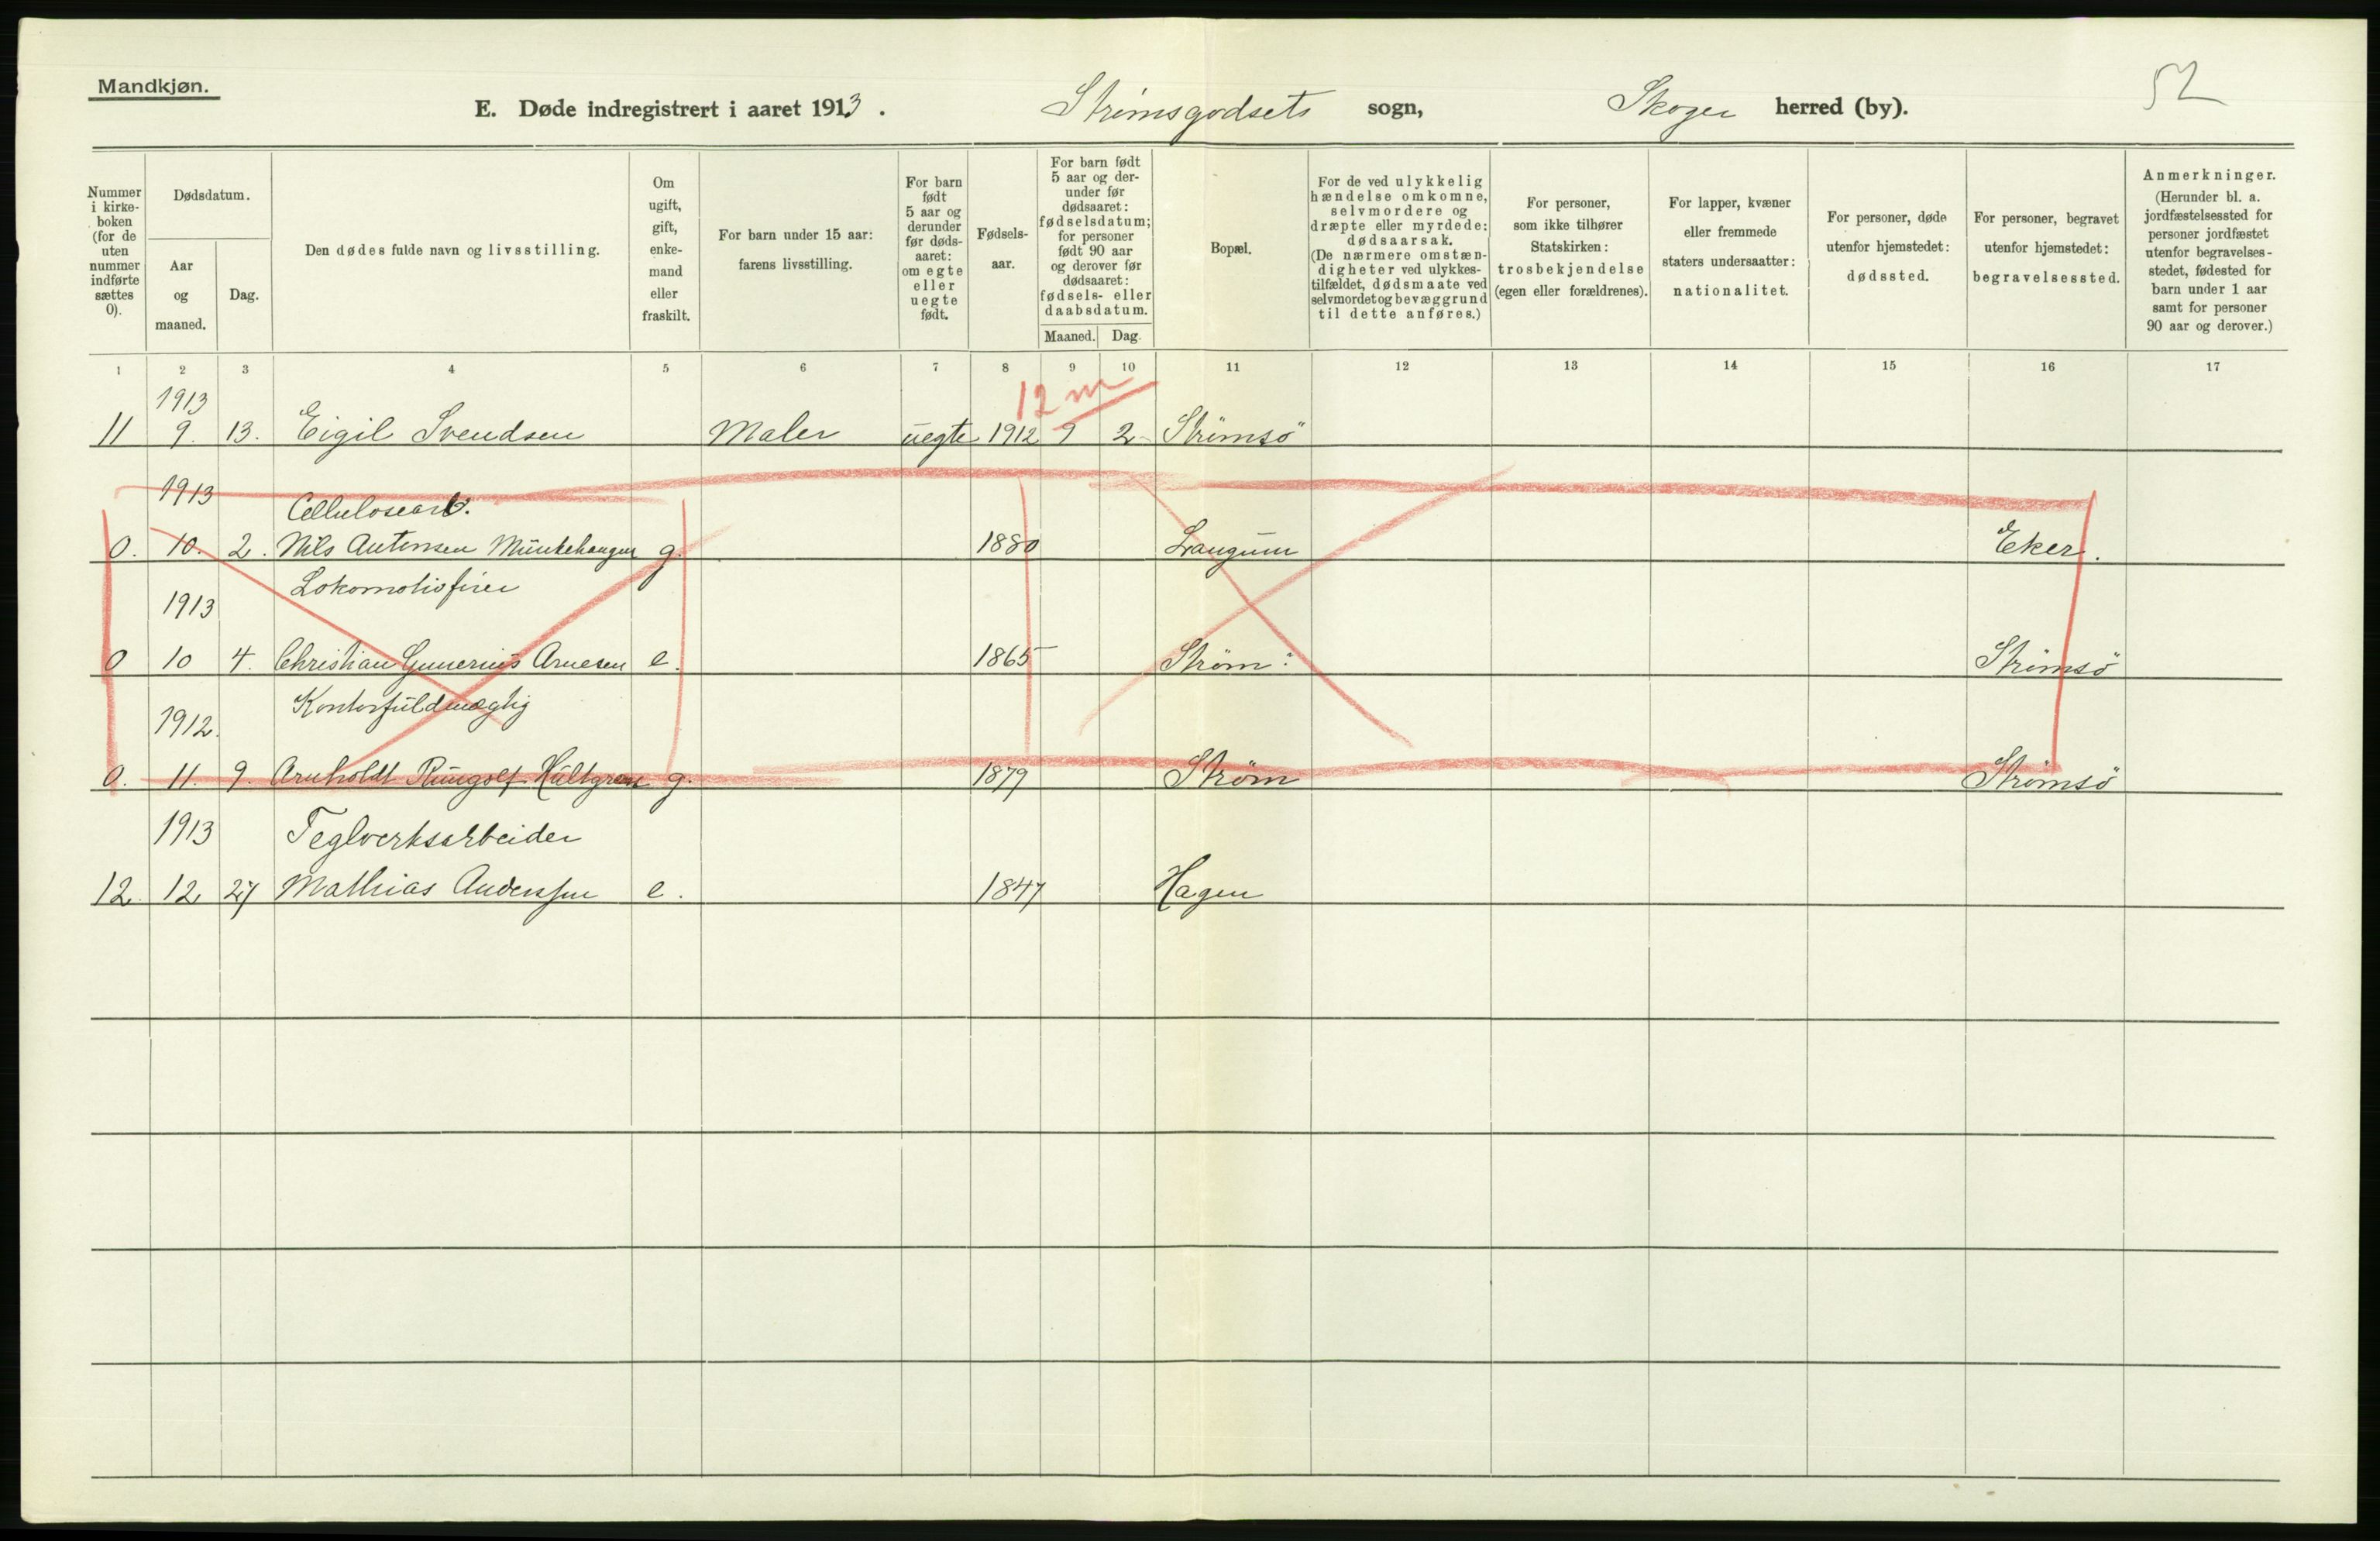 Mandkjøn.
E. Døde indregistrert i aaret 1913. Strømsgodsets sogn, Skoger herred (by).
52
Nummer i kirke-boken (for de uten nummer indførte sættes 0).
Dødsdatum.
Aar og maaned.
Dag.
Den dødes fulde navn og livsstilling.
Om ugift, gift, enke-mand eller fraskilt.
For barn under 15 aar: farens livsstilling.
For barn født 5 aar og derunder før døds-aaret: om egte eller uegte født.
Fødsels-aar.
For barn født 5 aar og der-under før dødsaaret: fødselsdatum; for personer født 90 aar og derover før dødsaaret: fødsels- eller daabsdatum.
Maaned.
Dag.
Bopæl.
For de ved ulykkelig hændelse omkomne, selvmordere og dræpte eller myrdede: dødsaarsak. (De nærmere omstæn-digheter ved ulykkes-tilfældet, dødsmaate ved selvmordet og bevæggrund til dette anføres.)
For personer, som ikke tilhører Statskirken: trosbekjendelse (egen eller forældrenes).
For lapper, kvæner eller fremmede staters undersaatter: nationalitet.
For personer, døde utenfor hjemstedet: dødssted.
For personer, begravet utenfor hjemstedet: begravelsessted.
Anmerkninger. (Herunder bl. a. jordfæstelsessted for personer jordfæstet utenfor begravelses-stedet, fødested for barn under 1 aar samt for personer 90 aar og derover.)
1 2 3 4 5 6 7 8 9 10 11 12 13 14 15 16 17
1913
12 m
11 9. 13. Eigil Svendsen Maler uegte 1912 9 2 Strømsö
1913 Cellulosearb.
0. 10. 2. Nils Antonsen Munkehaugen g. 1880 Langum Eker.
1913 Lokomotivfirer
0 10 4. Christian Gunerius Arnesen e. 1865 Strøm. Strømsö
1912. Kontorfuldmægtig
0. 11. 9. Arnholdt Hultgren g. 1879 Strøm Strømsö
1913 Teglverksarbeider
12. 12 27 Mathias Anderssen e. 1847 Hagen